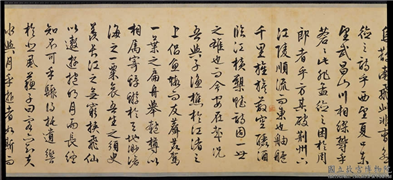 烏鵲南飛此非曹孟
德之詩乎西望夏口東
望武昌山川相繆鬱乎
蒼蒼此非孟德之困於周
郎者乎方其破荊州下
江陵順流而東也舳艫
千里旌旗蔽空釃酒
臨江橫槊賦詩固一世
之雄也而今安在哉況
吾與子漁樵於江渚之
上侶魚蝦而友麋鹿駕
一葉之扁舟舉匏樽以
相屬寄蜉蝣於天地渺滄
海之一粟哀吾生之須臾
羨長江之無窮挾飛仙
以遨遊抱明月而長終
知不可乎驟得託遺響
於悲風蘇子曰客亦知夫
水與月乎逝者如斯而
國立故宮博物院